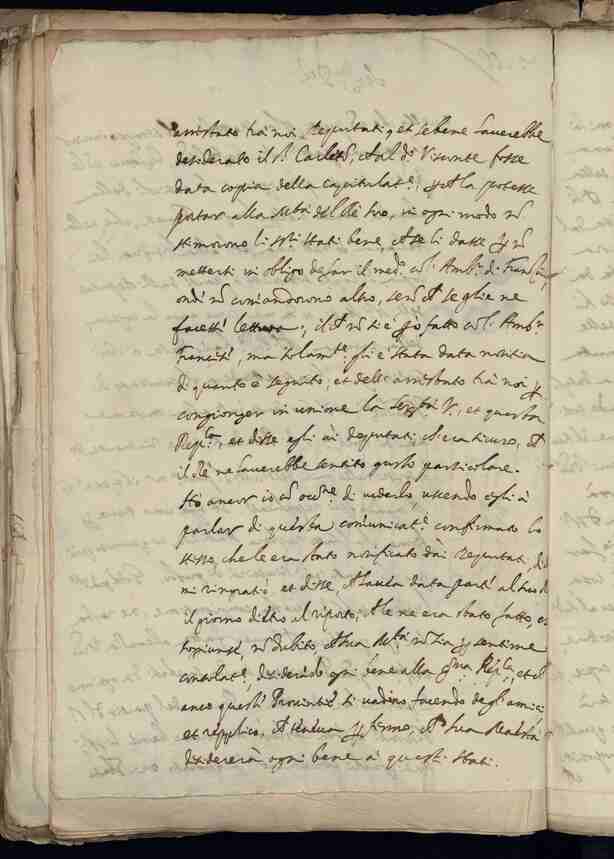 arrestato trà noi Deputati, et se bene haverebbe
desiderato il Sr. Carleton, che al dº Visconte fosse
data copia della capitulatne, che la potesse
portar alla Mtà del Rè suo, in ogni modo nõ
stimorono li Sri Stati bene, che se li dasse per nõ
mettersi in obligo de far il medº col Ambr di Francia,
ondi nõ comandorono altro, senõ che se glie ne
facesse lettura; il che nõ si è però fatto col Ambr
Francese, ma solamte gli è stata data notitia
di quanto è seguito, et dell' arrestato trà noi per
congionger in unione la Serstà V., et questa
Repca, et disse egli ai deputati, ch'era sicuro, che
il Rè ne haverebbe sentito gusto particolare.
Hò ancor io cõ occne di vederlo, uscendo egli à
parlar di questa comunicatne confirmato lo
stesso, che le era stato notificato dai Deputati,
mi ringratiò et disse, che havea data parte al suo
il giorno dietro al riporto, che le ne era stato fatto, et
soggiunse, nõ dubito, che sua Mtà nõ sia per sentirne
consolatne, desiderãdo ogni bene alla sma Repca, et ch'
anco queste Provincie si vadino facendo degl' amici
et replicò, che teneva per fermo, che sua Serenità
desidererà ogni bene à questi stati.